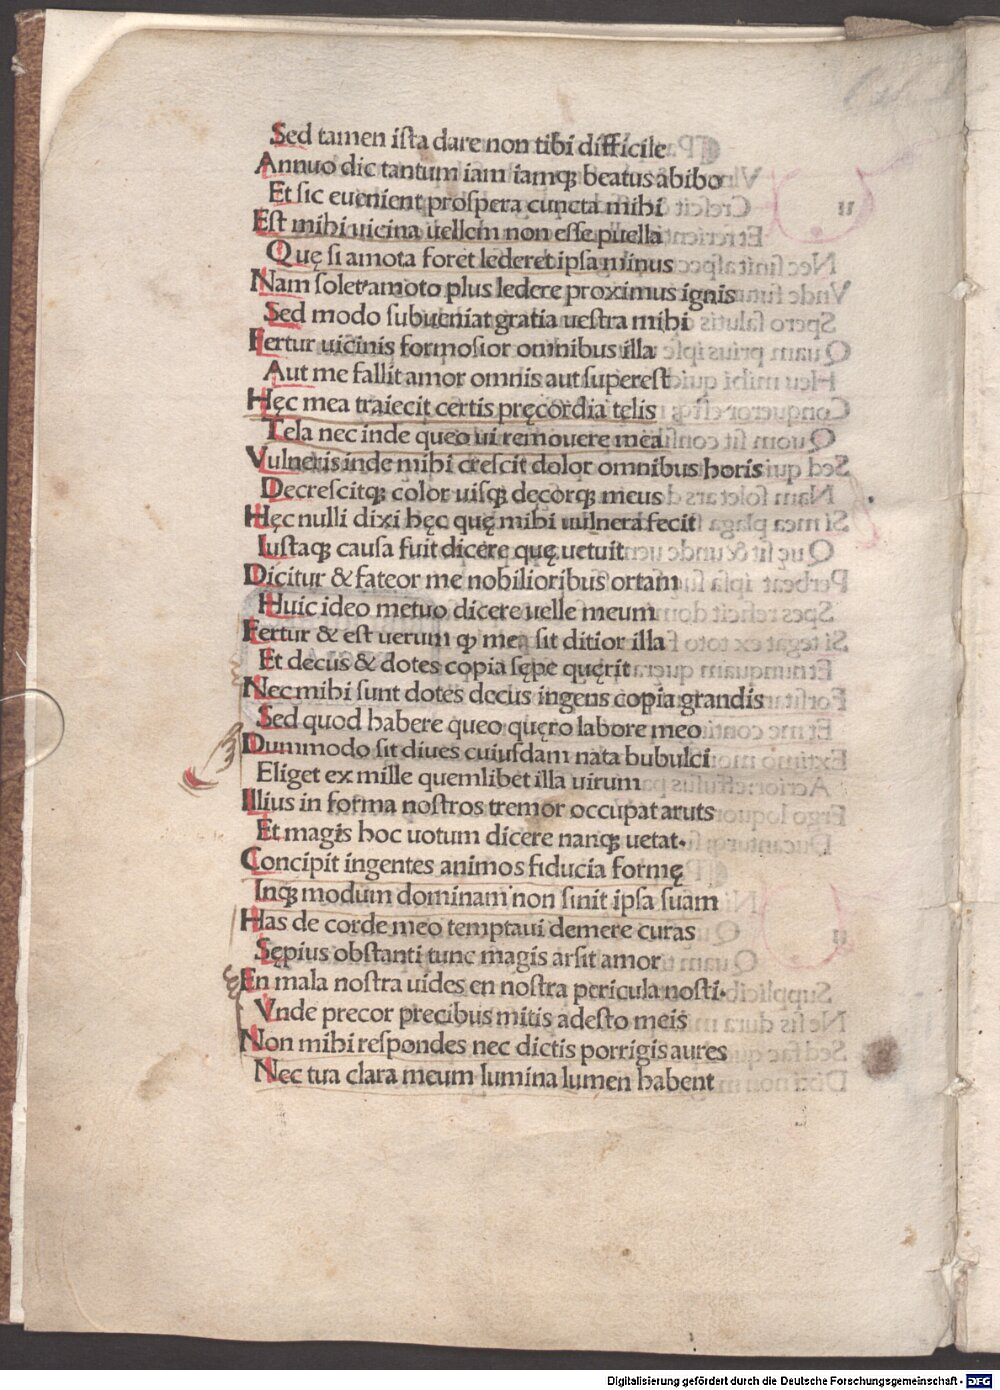 Sed tamen iſta dare non tibi difficile
Annuo dic tantum iam iamq; beatus abibo
Et ſic euenient proſpera cuncta mihi
Eſt mihi uicina uellem non eſſe puella
Quę ſi amota foret lederet ipſa minus
Nam ſolet amoto plus ledere proximus ignis
Sed modo ſubueniat gratia ueſtra mihi
Fertur uicinis formoſior omnibus illa
Aut me fallit amor omnis aut ſupereſt
Hęc mea traiecit certis pręcordia telis
Tela nec inde queo ui remouere mea
Vulneris inde mihi creſcit dolor omnibus horis
Decreſcitq; color uiſq; decorq; meus
Hęc nulli dixi hęc quę mihi uulnera fecit
Iuſtaq; cauſa fuit dicere quę uetuit
Dicitur & fateor me nobilioribus ortam
Huic ideo metuo dicere uelle meum
Fertur & eſt uerum ꝙ me ſit ditior illa
Et decus & dotes copia ſępe quęrit
Nec mihi ſunt dotes decus ingens copia grandis
Sed quod habere queo quęro labore meo
Dummodo ſit diues cuiuſdam nata bubulci
Eliget ex mille quemlibet illa uirum
Illius in forma noſtros tremor occupat artus
Et magis hoc uotum dicere nanq; uetat.
Concipit ingentes animos fiducia formę
Inq; modum dominam non ſinit ipſa ſuam
Has de corde meo temptaui demere curas
Sępius obſtanti tunc magis arſit amor
En mala noſtra uides en noſtra pericula noſti.
Vnde precor precibus mitis adeſto meis
Non mihi reſpondes nec dictis porrigis aures
Nec tua clara meum lumina lumen habent
Digitalisierung gefördert durch die Deutsche Forschungsgemeinschaft - DFG